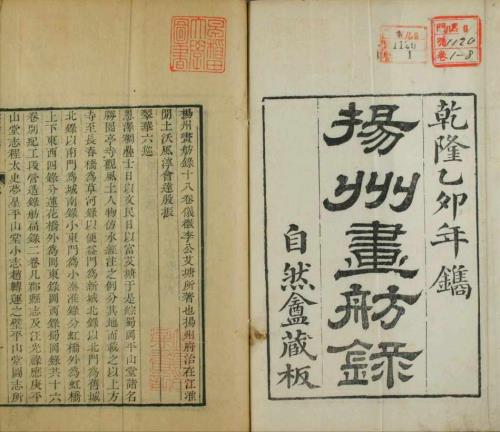 乾隆乙卯年鐫
揚州畫舫錄
自然盦藏板
1120
1-8
1120
1
揚州畫舫錄十八卷儀徵李公艾塘所著也揚州府治在江淮
間土沃風淳會逢殷振
翠華六巡
恩澤頻疊士日以文民日以富艾塘于是綜蜀岡平山堂諸名
勝園亭寺觀風土人物仿水經注之例分其地而載之以上方
寺至長春橋為草河錄以便益門為新城北錄以北門為舊城
北錄以南門為城南錄小東門為小秦淮錄分虹橋外為虹橋
上下東西四錄分蓮花橋外為岡東錄岡西錄蜀岡錄共十六
卷別紀工段營造錄舫扁錄二卷凡郡縣志及汪光祿應庚平
山堂志程太史夢星平山堂小志趙轉運之壁平山堂圖志所